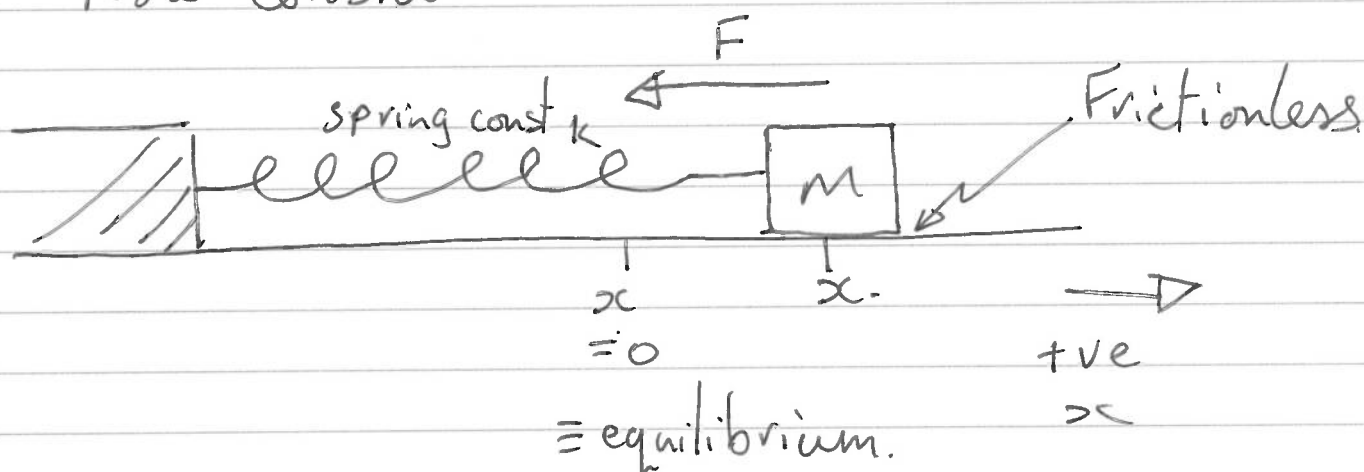 F
spring const k
Frictionless
m
x
x.
= 0
+ve
x
≡ equilibrium.